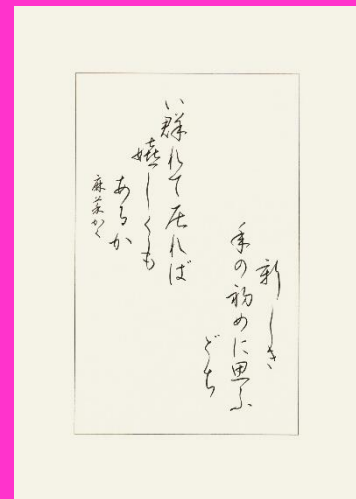 新しき
年の初めに思ふ
どち
い群れて居れば
嬉しくも
あるか
麻菜かく